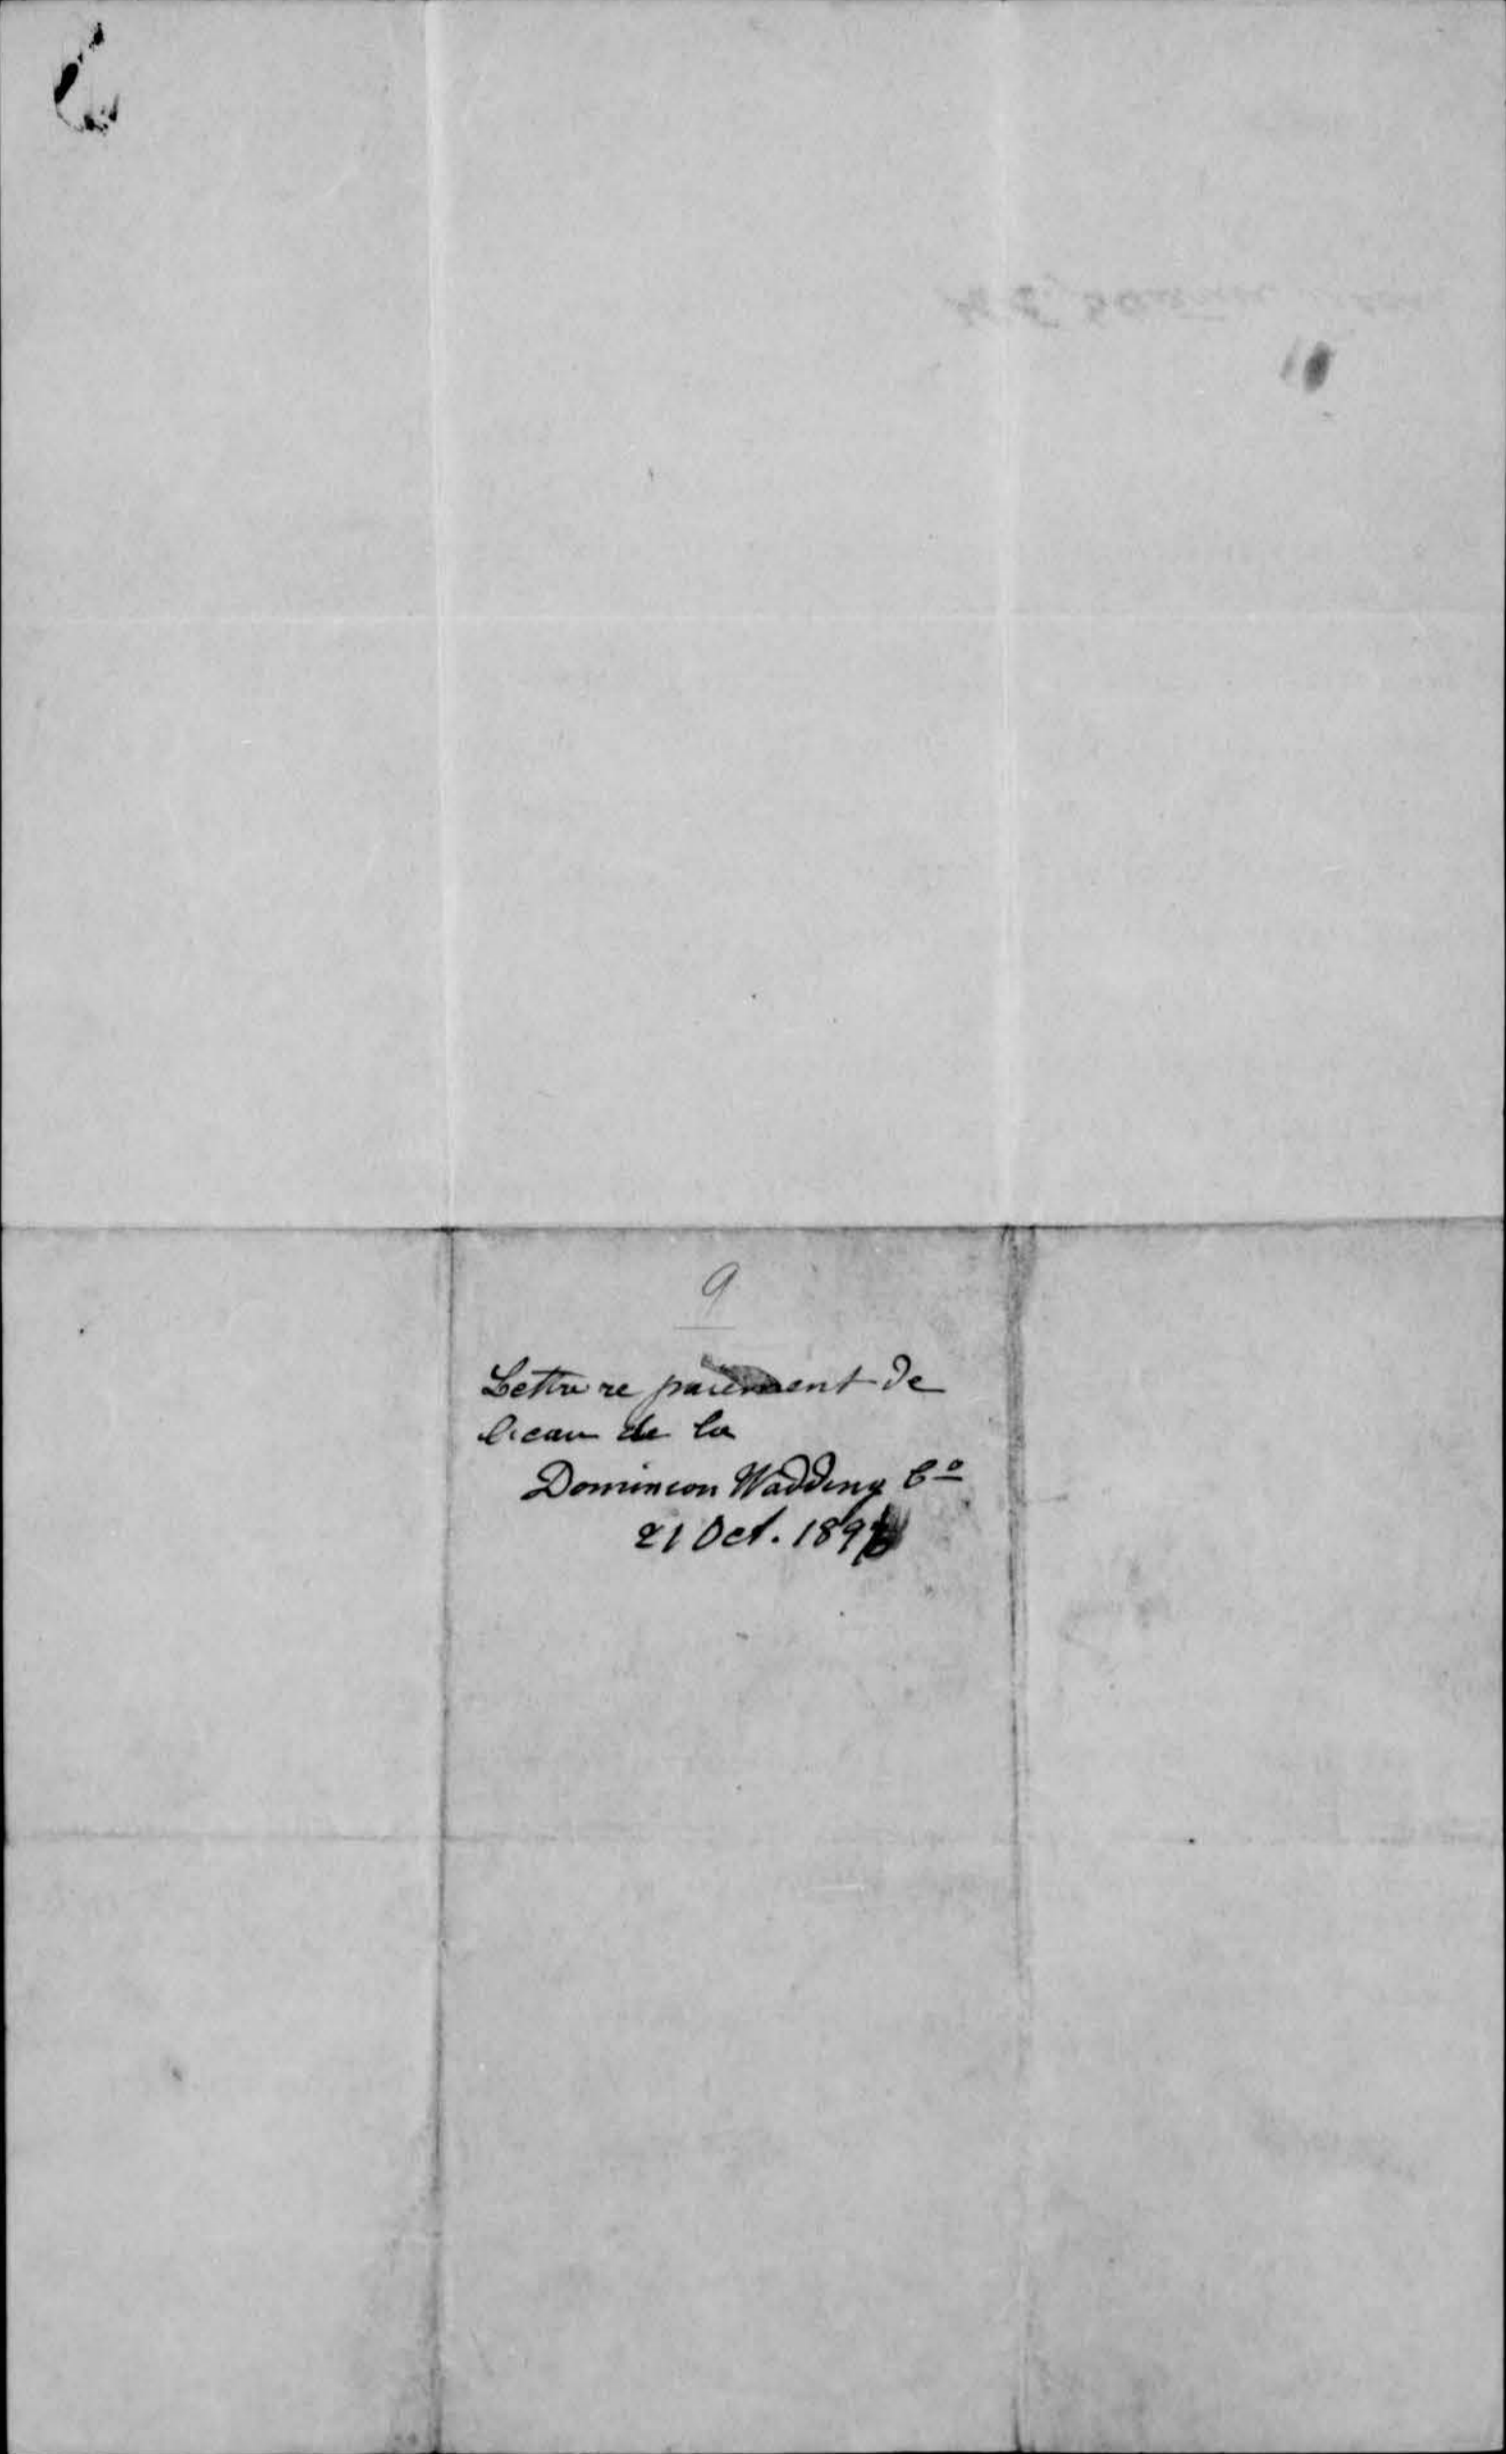 9
Lettre re paiement de
l'eau de la
Dominion Wadding Co
21 Oct. 189